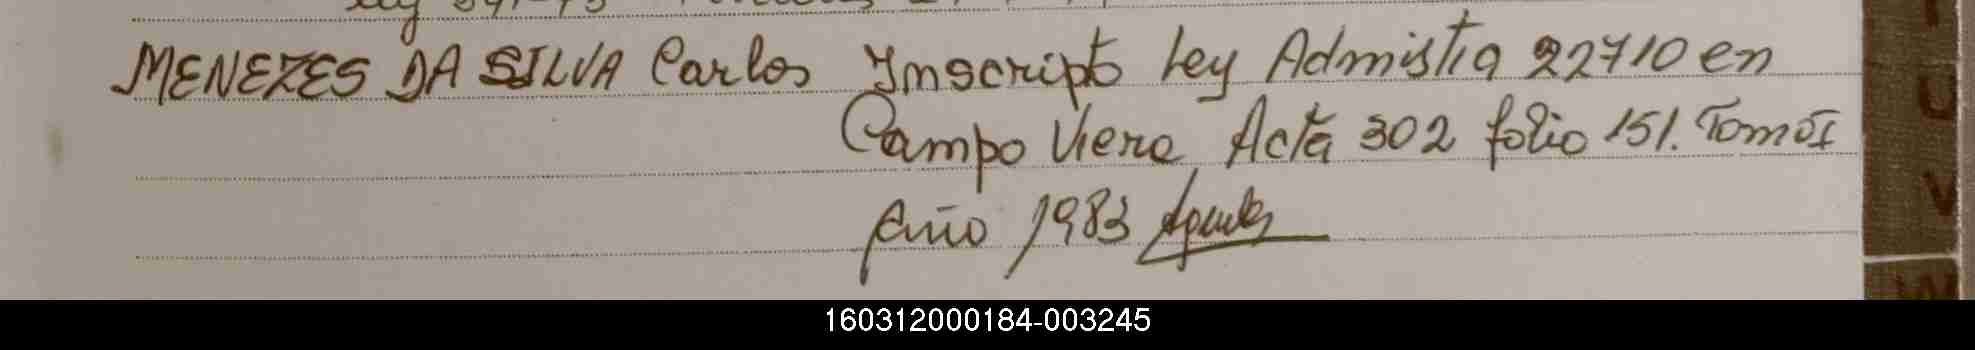 MENEZES DA SILVA Carlos Ynscripto Ley Admistia 22710 en
Campo Viera Acta 302 folio 151. Tomo I
Año 1983
160312000184-003245
T
U
V
W